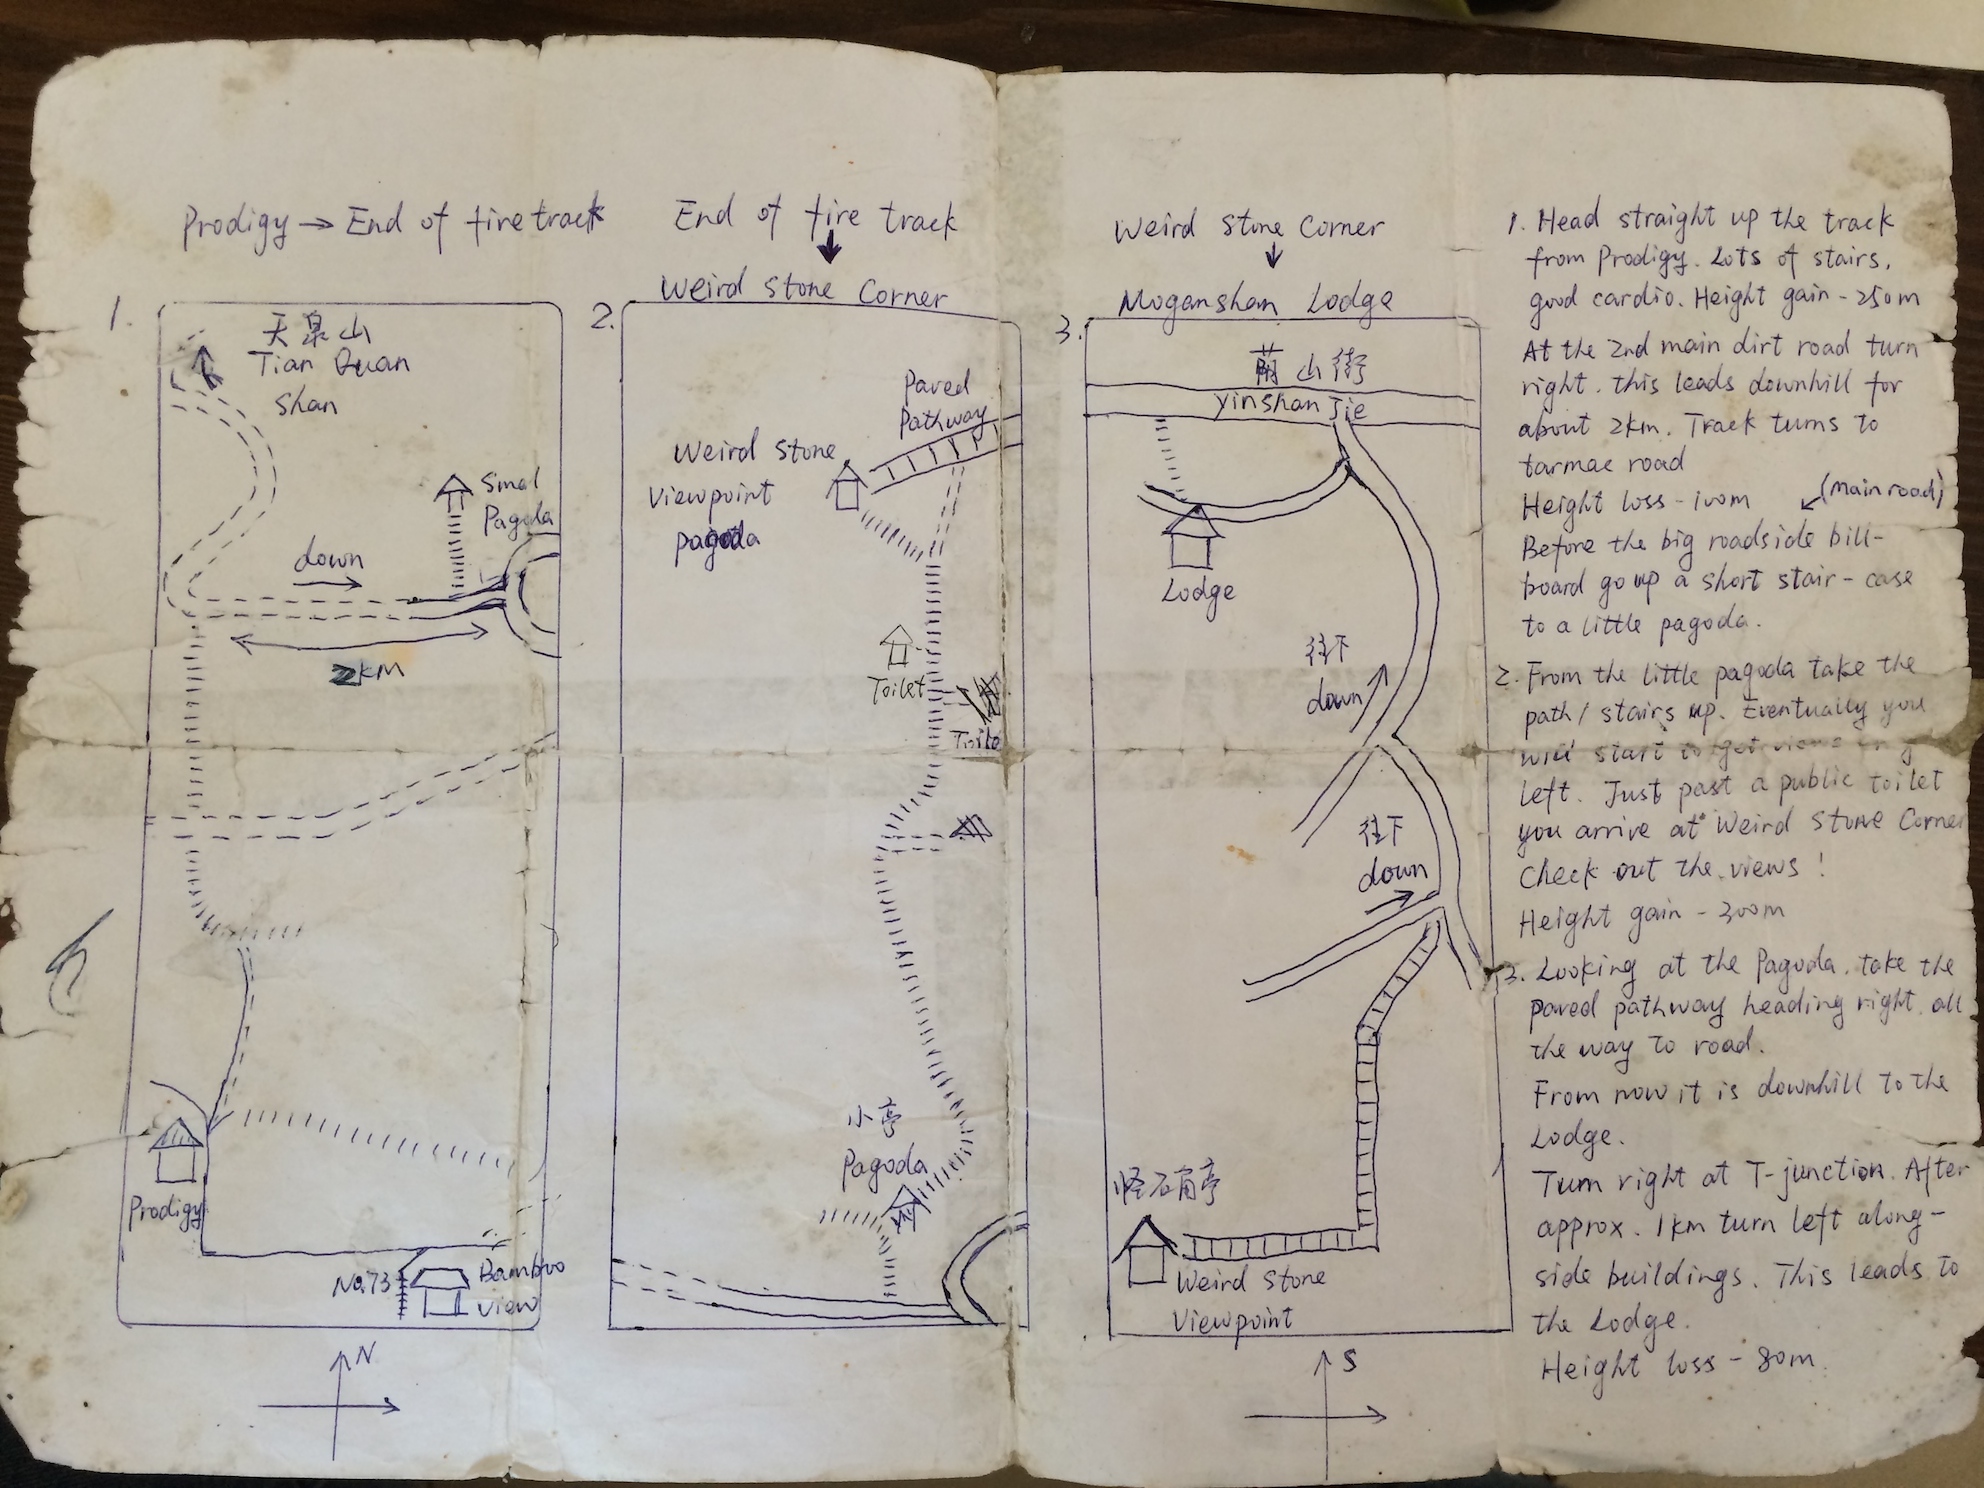 Prodigy → End of fire track
1.
天泉山
Tian Quan
Shan
Smal
Pagoda
down
2km
Prodigy
No.73
Bamboo
view
N
End of fire track
↓
Weird Stone Corner
2.
Paved
Pathway
Weird Stone
Viewpoint
pagoda
Toilet
Toile
小亭
Pagoda
Weird Stone Corner
↓
Moganshan Lodge
3.
荫山街
Yinshan Jie
Lodge
往下
down
往下
down
怪石角亭
Weird Stone
Viewpoint
S
1. Head straight up the track
from Prodigy. Lots of stairs,
good cardio. Height gain - 250m
At the 2nd main dirt road turn
right. this leads downhill for
about 2km. Track turns to
tarmac road
Height loss - 100m
(main road)
Before the big roadside bill-
board go up a short stair-case
to a little pagoda.
2. From the little pagoda take the
path/stairs up. Eventually you
will start to get views
left. Just past a public toilet
you arrive at Weird Stone Corner
Check out the views!
Height gain - 300m
3. Looking at the Pagoda. take the
paved pathway heading right, all
the way to road.
From now it is downhill to the
Lodge.
Turn right at T-junction. After
approx. 1km turn left along-
side buildings. This leads to
the Lodge.
Height loss - 80m.